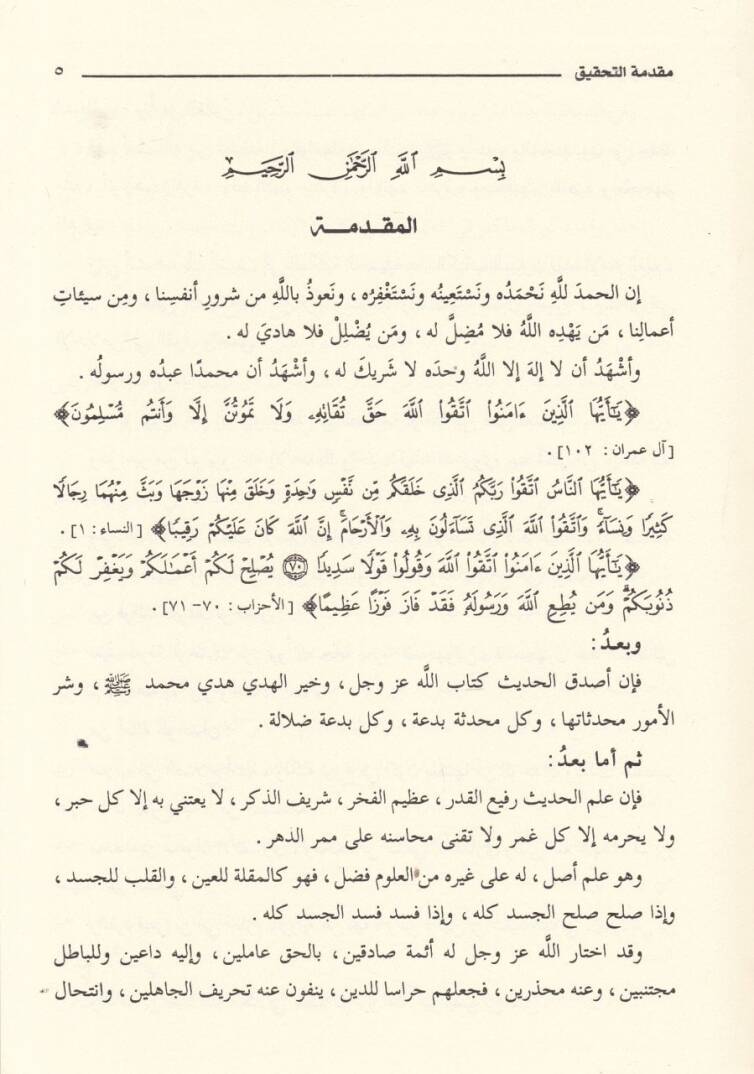 مقدمة التحقيق ٥
بِسْمِ ٱللَّهِ ٱلرَّحْمَٰنِ ٱلرَّحِيمِ
المقدمة
إن الحمدَ للَّهِ نَحْمَدُه ونَسْتَعِينُه ونَسْتَغْفِرُه ، ونَعوذُ باللَّهِ من شرورِ أنفسِنا ، ومِن سيئاتِ
أعمالِنا ، مَن يَهْدِه اللَّهُ فلا مُضِلَّ له ، ومَن يُضْلِلْ فلا هاديَ له .
وأشْهَدُ أن لا إلهَ إلا اللَّهُ وحدَه لا شريكَ له ، وأشْهَدُ أن محمدًا عبدُه ورسولُه .
﴿يَٰٓأَيُّهَا ٱلَّذِينَ ءَامَنُوا۟ ٱتَّقُوا۟ ٱللَّهَ حَقَّ تُقَاتِهِۦ وَلَا تَمُوتُنَّ إِلَّا وَأَنتُم مُّسْلِمُونَ﴾
[آل عمران : ١٠٢] .
﴿يَٰٓأَيُّهَا ٱلنَّاسُ ٱتَّقُوا۟ رَبَّكُمُ ٱلَّذِى خَلَقَكُم مِّن نَّفْسٍ وَٰحِدَةٍ وَخَلَقَ مِنْهَا زَوْجَهَا وَبَثَّ مِنْهُمَا رِجَالًا
كَثِيرًا وَنِسَآءً ۚ وَٱتَّقُوا۟ ٱللَّهَ ٱلَّذِى تَسَآءَلُونَ بِهِۦ وَٱلْأَرْحَامَ ۚ إِنَّ ٱللَّهَ كَانَ عَلَيْكُمْ رَقِيبًا﴾ [النساء : ١] .
﴿يَٰٓأَيُّهَا ٱلَّذِينَ ءَامَنُوا۟ ٱتَّقُوا۟ ٱللَّهَ وَقُولُوا۟ قَوْلًا سَدِيدًا ﴿٧٠﴾ يُصْلِحْ لَكُمْ أَعْمَٰلَكُمْ وَيَغْفِرْ لَكُمْ
ذُنُوبَكُمْ ۗ وَمَن يُطِعِ ٱللَّهَ وَرَسُولَهُۥ فَقَدْ فَازَ فَوْزًا عَظِيمًا﴾ [الأحزاب : ٧٠- ٧١] .
وبعدُ :
فإن أصدق الحديث كتاب اللَّه عز وجل ، وخير الهدي هدي محمد ﷺ ، وشر
الأمور محدثاتها ، وكل محدثة بدعة ، وكل بدعة ضلالة .
ثم أما بعدُ :
فإن علم الحديث رفيع القدر ، عظيم الفخر ، شريف الذكر ، لا يعتني به إلا كل حبر ،
ولا يحرمه إلا كل غمر ولا تفنى محاسنه على ممر الدهر .
وهو علم أصل ، له على غيره من العلوم فضل ، فهو كالمقلة للعين ، والقلب للجسد ،
وإذا صلح صلح الجسد كله ، وإذا فسد فسد الجسد كله .
وقد اختار اللَّه عز وجل له أئمة صادقين ، بالحق عاملين ، وإليه داعين وللباطل
مجتنبين ، وعنه محذرين ، فجعلهم حراسا للدين ، ينفون عنه تحريف الجاهلين ، وانتحال